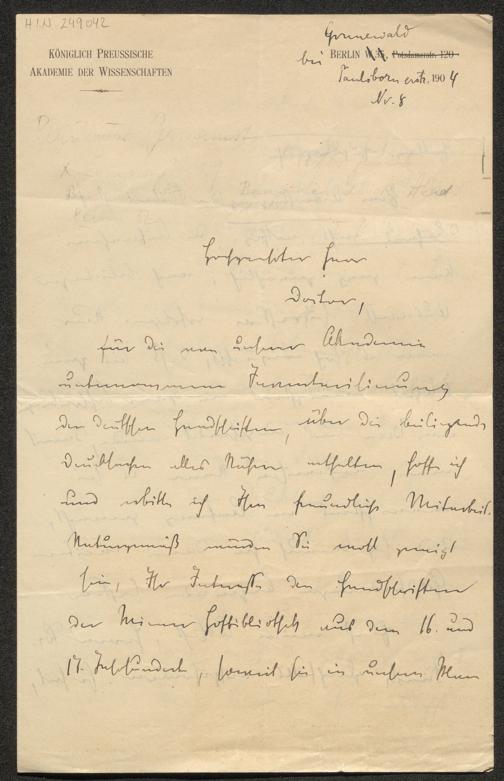 H.I.N. 249042
KÖNIGLICH PREUSSISCHE
AKADEMIE DER WISSENSCHAFTEN
Grunewald
bei BERLIN W.35, Potsdamerstr. 120
Paulsbornerstr. 1904
Nr. 8
Hochgeehrter Herr
Doctor,
für die von unserer Akademie
unternommene Inventarisierung
der deutschen Handschriften, über die beiliegende
Drucksachen alles Nähere enthalten, hoffe ich
und erbitte ich Ihre freundliche Mitarbeit.
Naturgemäß würden Sie wohl geneigt
sein, Ihr Interesse den Handschriften
der Wiener Hofbibliothek aus dem 16. und
17. Jahrhundert, soweit sie in unsern Plan